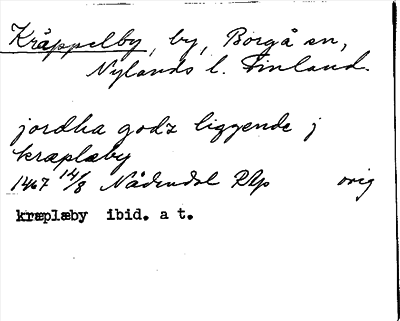 Kråppelby, by, Borgå sn,
Nylands l. Finland.
jordha godz liggende j
kræplæby
1467 14/8 Nådendal RAp orig
kræplæby ibid. a t.